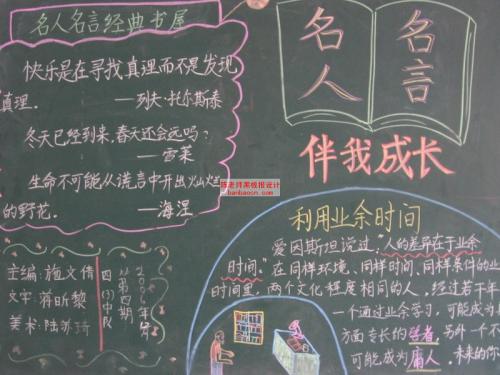 名人名言经典书屋
快乐是在寻找真理而不是发现
真理.
——列夫·托尔斯泰
冬天已经到来,春天还会远吗?
——雪莱
生命不可能从谎言中开出灿烂
的野花.
——海涅
名人
名言
伴我成长
陈老师黑板报设计
banbaocn.com
利用业余时间
爱因斯坦说过:"人的差异在于业余
时间."在同样环境、同样时间、同样条件的业
时间里,两个文化程度相同的人,经过若干年
一个通过业余学习,可能成为
方面专长的学者,另外一个不
可能成为庸人.未来的你
主编:施文倩
文字:蒋昕黎
美术:陆苏琦
四(3)中队
第四期